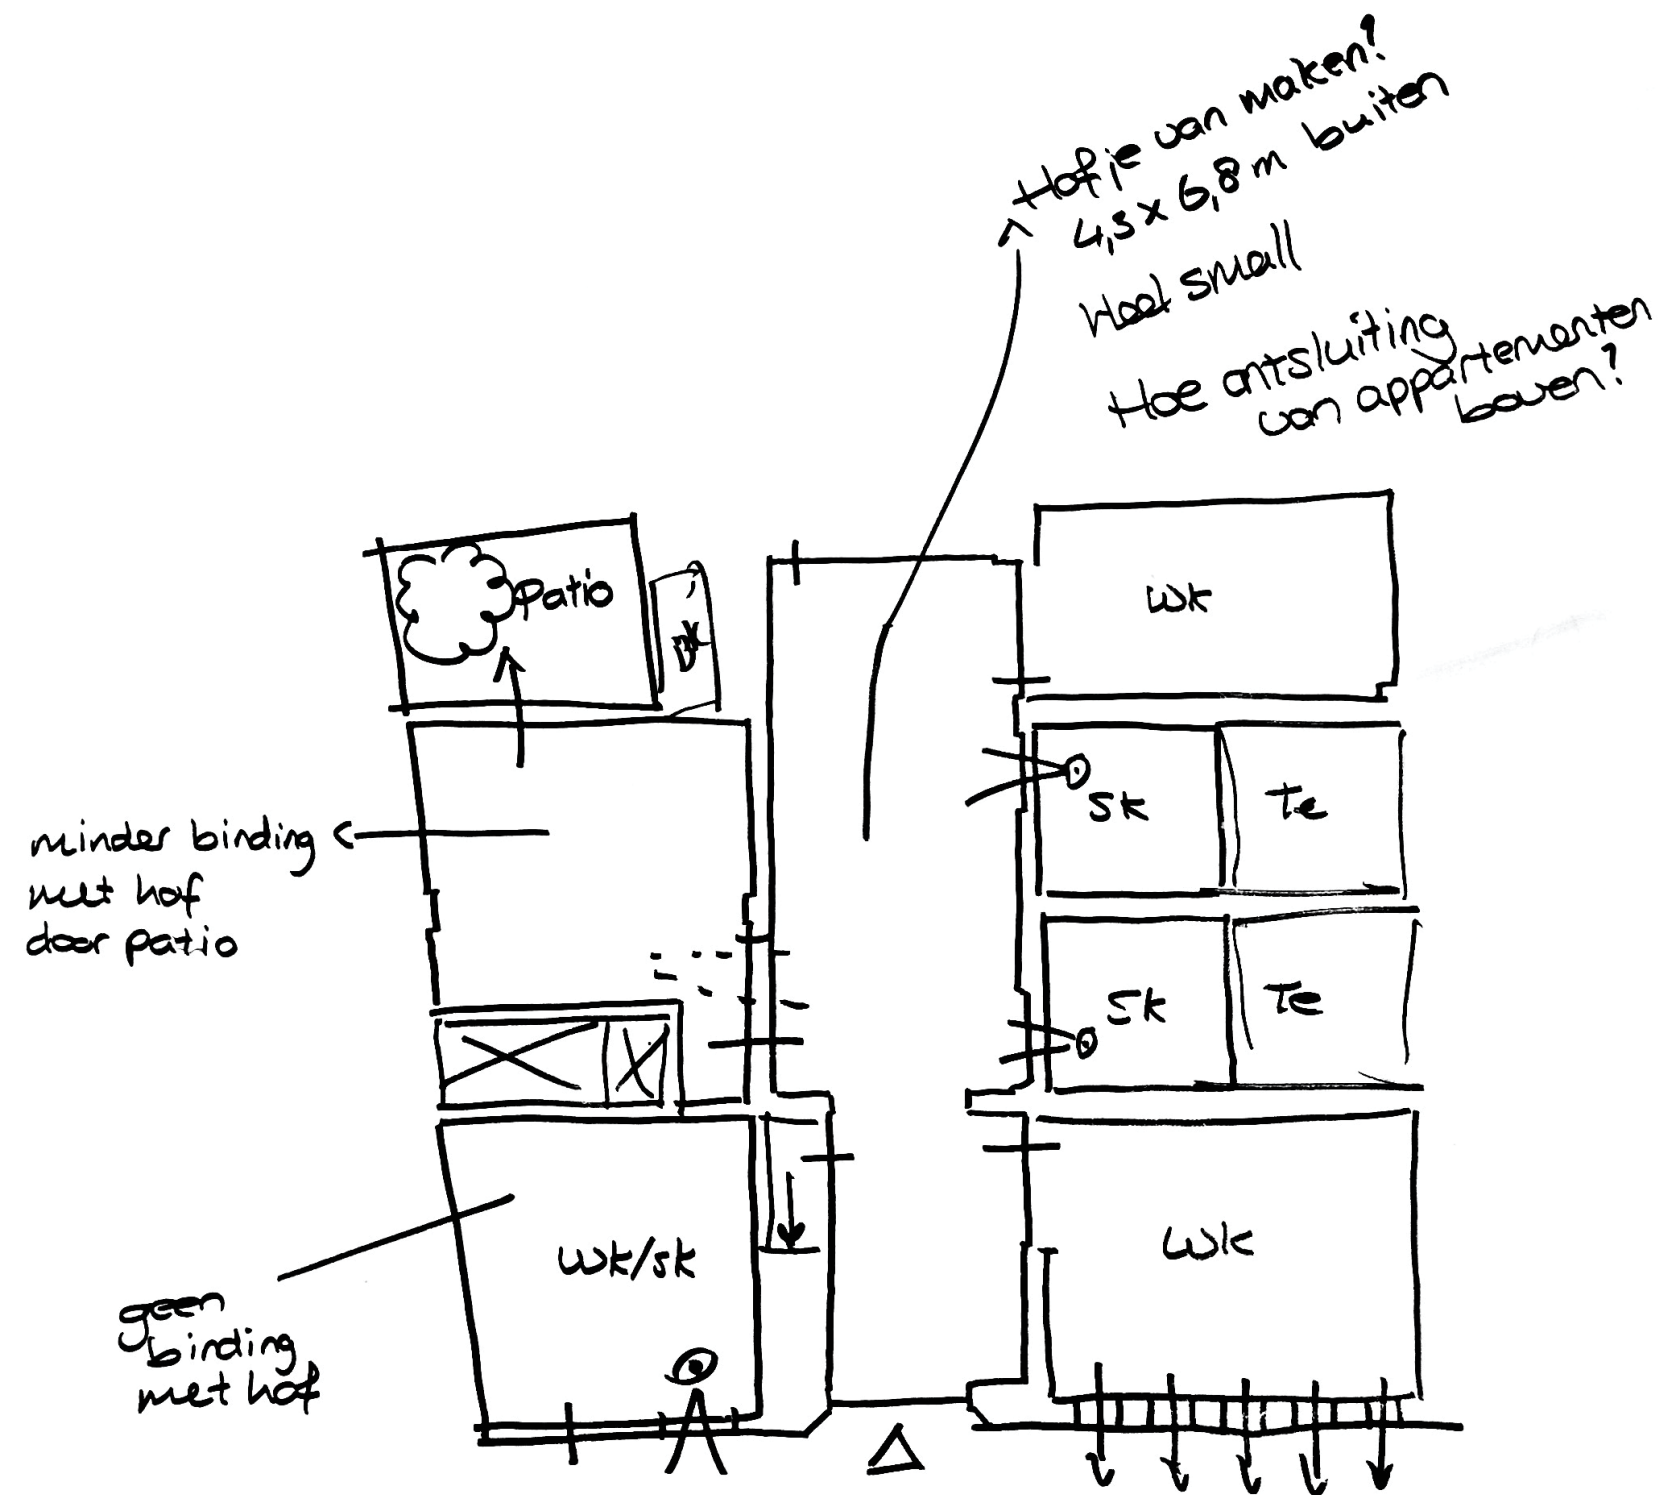 Hofje van maken?
4,3 x 6,8 m buiten
Heel smal
Hoe ontsluiting
van appartementen
boven?
Patio
wk
sk
Te
minder binding
met hof
door patio
sk
Te
wk/sk
wk
geen
binding
met hof